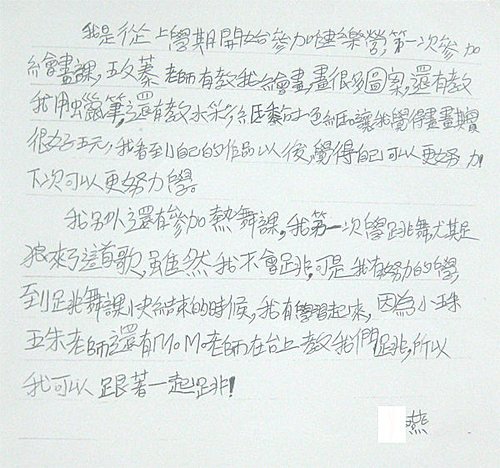 我是從上學期開始參加快樂營,第一次參加
繪畫課,玫蓁老師有教我繪畫,畫很多圖案,還有教
我用蠟筆,還有教水彩、紙黏土、色紙,讓我覺得畫畫其實
很好玩,我看到自己的作品以後,覺得自己可以更努力!
下次可以更努力學。
我另外還有參加熱舞課,我第一次學跳舞尤其是
狼來了這首歌,雖然我不會跳,可是我有努力的學,
到跳舞課快結束的時候,我有學習起來,因為小珠
珠老師還有MoMo老師在台上教我們跳,所以
我可以跟著一起跳!
燕